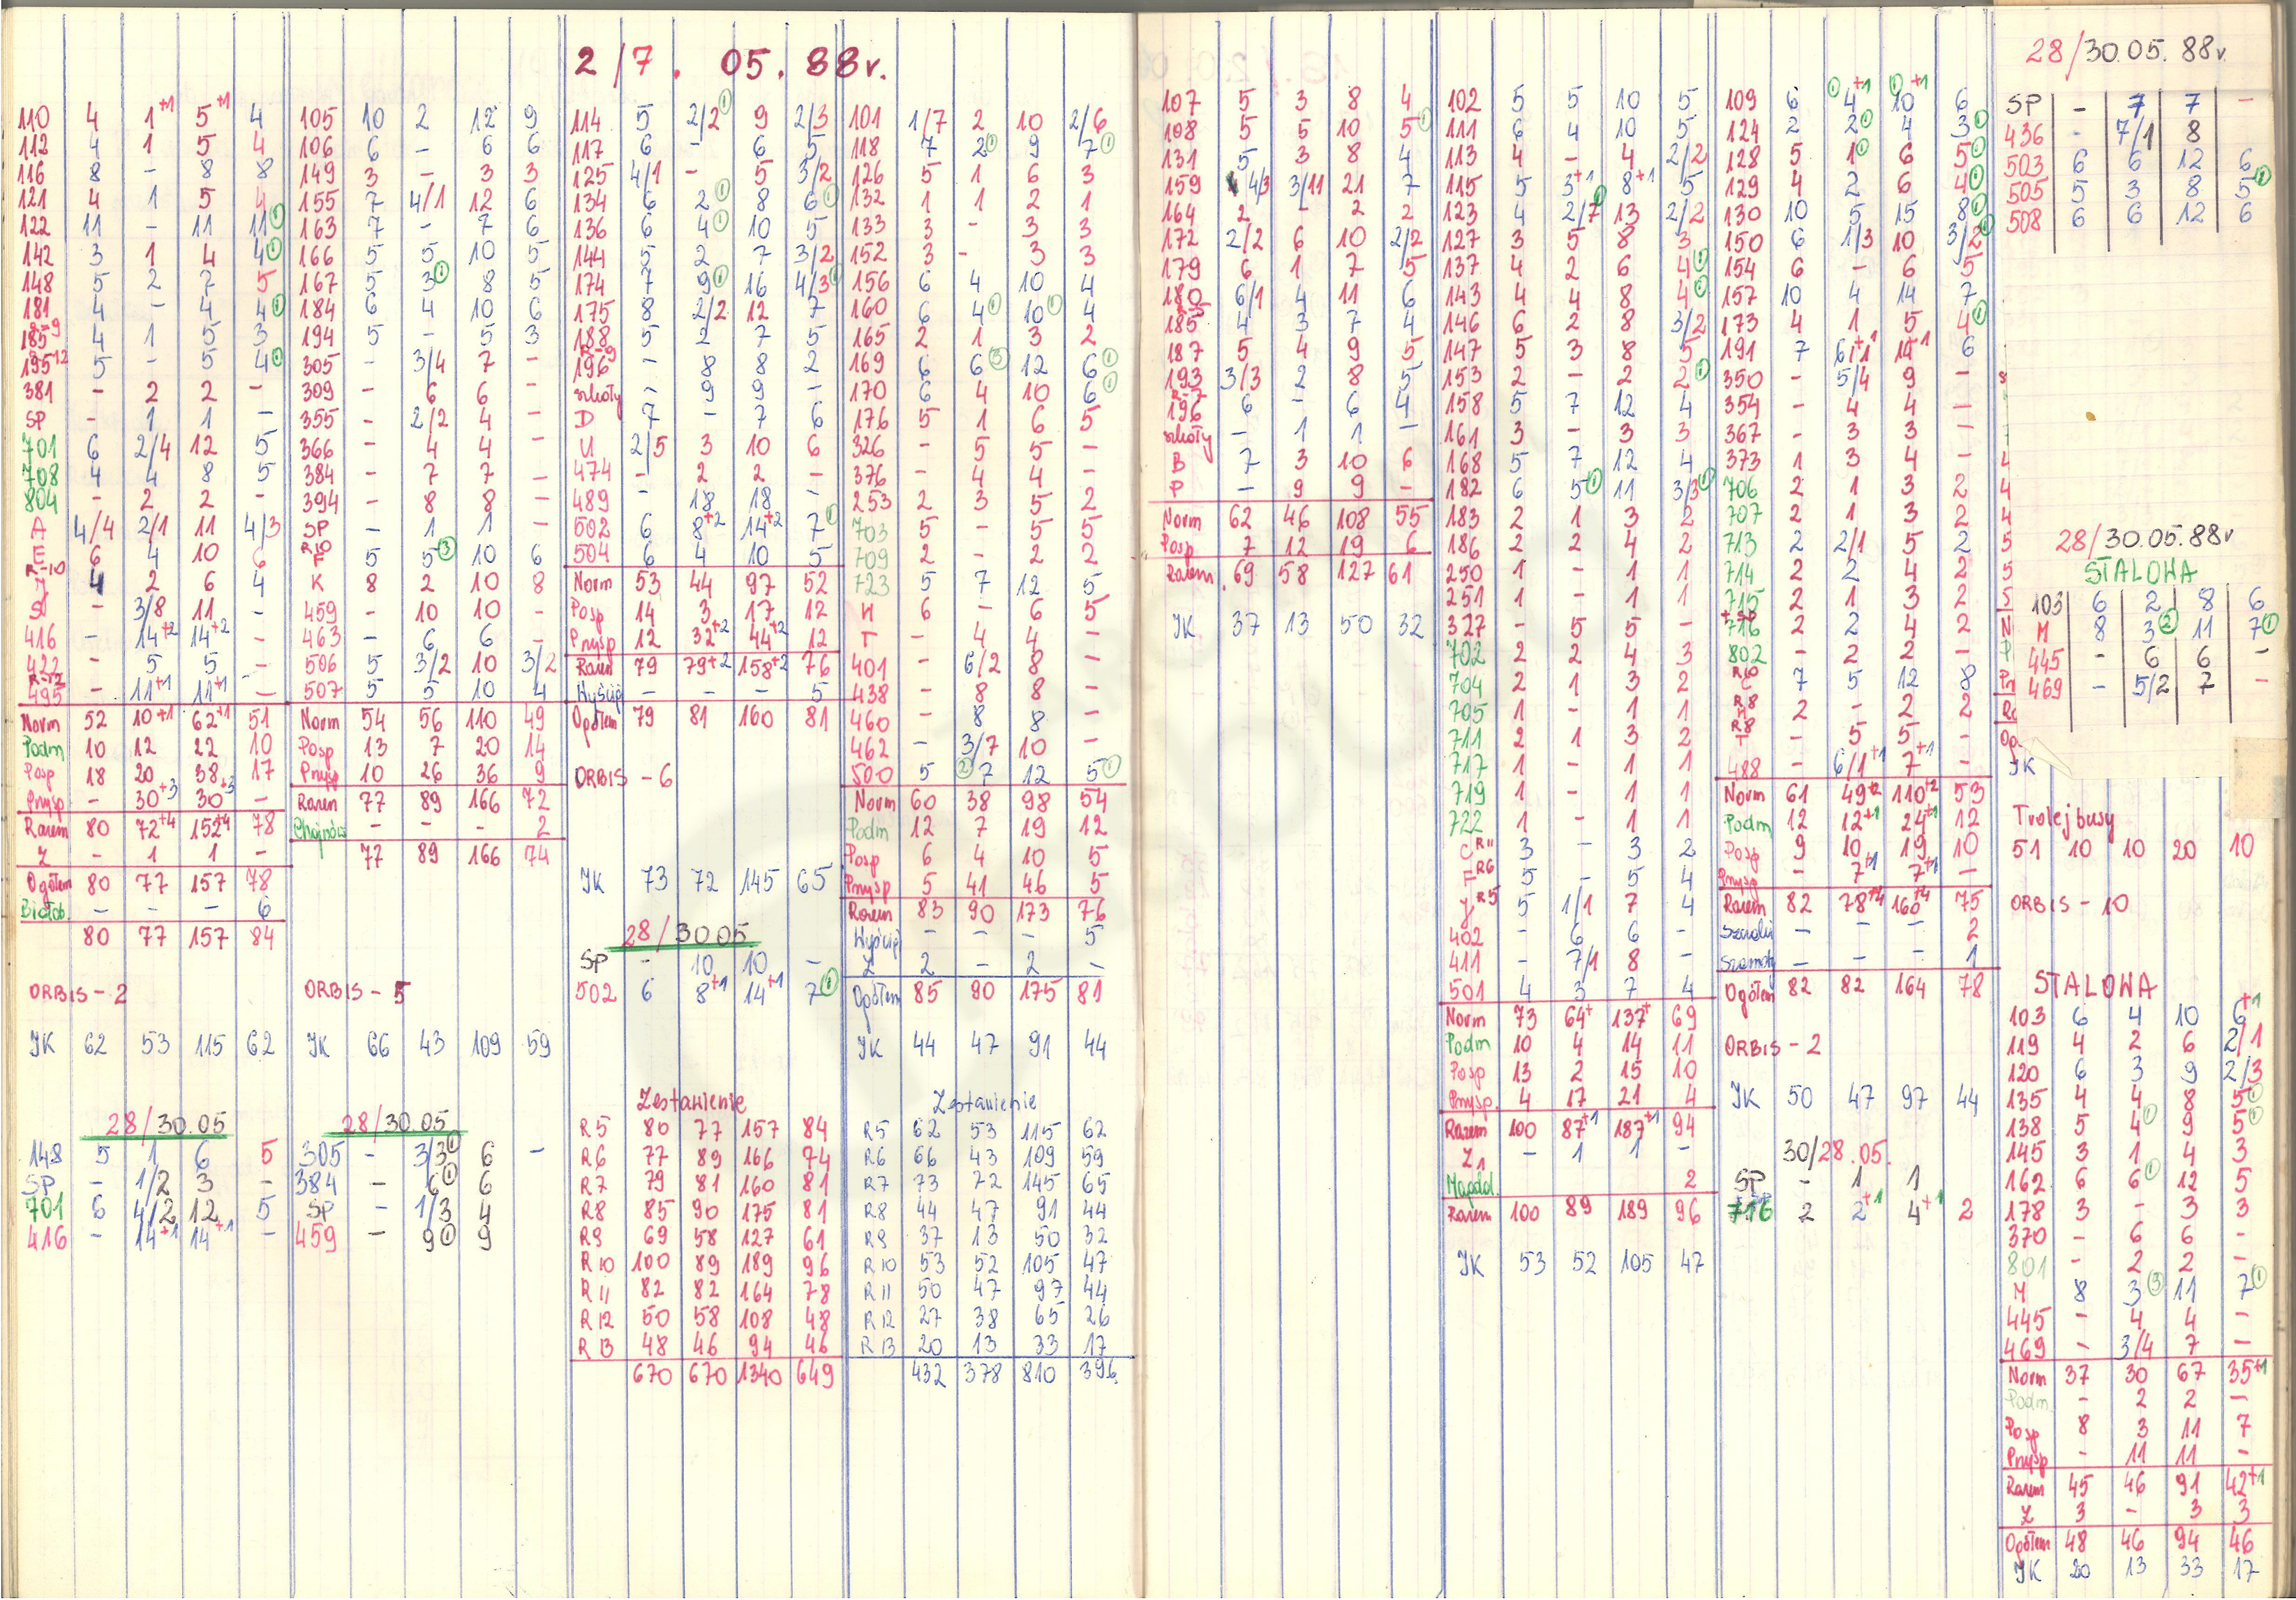 2/7. 05. 88r.
110 4 1+1 5+1 4
112 4 1 5 4
116 8 - 8 8
121 4 1 5 4
122 11 - 11 11①
142 3 1 4 4①
148 5 2 7 5
181 4 - 4 4①
185 R-9 4 1 5 3
195 R-12 5 - 5 4①
381 - 2 2 -
SP - 1 1 -
701 6 2/4 12 5
708 4 4 8 5
804 - 2 2 -
A 4/4 2/1 11 4/3
E 6 4 10 6
J R-10 4 2 6 4
S - 3/8 11 -
416 - 14+2 14+2 -
422 - 5 5 -
495 R-12 - 11+1 11+1 -
Norm 52 10+1 62+1 51
Podm 10 12 22 10
Posp 18 20 38 17
Pnysp - 30+3 30+3 -
Razem 80 72+4 152+4 78
Z - 1 1 -
Ogółem 80 77 157 78
Białob. - - - 6
80 77 157 84
ORBIS - 2
JK 62 53 115 62
28/30.05
148 5 1 6 5
SP - 1/2 3 -
701 6 4/2 12 5
416 - 14+1 14+1 -
105 10 2 12 9
106 6 - 6 6
149 3 - 3 3
155 7 4/1 12 6
163 7 - 7 6
166 5 5 10 5
167 5 3① 8 5
184 6 4 10 6
194 5 - 5 3
305 - 3/4 7 -
309 - 6 6 -
355 - 2/2 4 -
366 - 4 4 -
384 - 7 7 -
394 - 8 8 -
SP - 1 1 -
F R10 5 5③ 10 6
K 8 2 10 8
459 - 10 10 -
463 - 6 6 -
506 5 3/2 10 3/2
507 5 5 10 4
Norm 54 56 110 49
Posp 13 7 20 14
Pnysp 10 26 36 9
Razem 77 89 166 72
Chojnów - - - 2
77 89 166 74
ORBIS - 5
JK 66 43 109 59
28/30.05
305 - 3/3① 6 -
384 - 6① 6
SP - 1/3 4
459 - 9① 9
114 5 2/2① 9 2/3
117 6 - 6 5
125 4/1 - 5 3/2
134 6 2① 8 6①
136 6 4① 10 5
144 5 2 7 3/2
174 7 9① 16 4/3①
175 8 2/2 12 7
188 5 2 7 5
196 R-9 - 8 8 2
szkoły - 9 9 -
D 7 - 7 6
U 2/5 3 10 6
474 - 2 2 -
489 - 18 18 -
502 6 8+2 14+2 7①
504 6 4 10 5
Norm 53 44 97 52
Posp 14 3 17 12
Pnysp 12 32+2 44+2 12
Razem 79 79+2 158+2 76
Wyścig - - - 5
Ogółem 79 81 160 81
ORBIS - 6
JK 73 72 145 65
28/30.05
SP - 10 10 -
502 6 8+1 14+1 7①
Zestawienie
R5 80 77 157 84
R6 77 89 166 74
R7 79 81 160 81
R8 85 90 175 81
R9 69 58 127 61
R10 100 89 189 96
R11 82 82 164 78
R12 50 58 108 48
R13 48 46 94 46
670 670 1340 649
101 1/7 2 10 2/6
118 7 2① 9 7①
126 5 1 6 3
132 1 1 2 1
133 3 - 3 3
152 3 - 3 3
156 6 4 10 4
160 6 4① 10① 4
165 2 1 3 2
169 6 6③ 12 6①
170 6 4 10 6①
176 5 1 6 5
326 - 5 5 -
376 - 4 4 -
253 2 3 5 2
703 5 - 5 5
709 2 - 2 2
723 5 7 12 5
H 6 - 6 5
T - 4 4 -
401 - 6/2 8 -
438 - 8 8 -
460 - 8 8 -
462 - 3/7 10 -
500 5 ②7 12 5①
Norm 60 38 98 54
Podm 12 7 19 12
Posp 6 4 10 5
Pnysp 5 41 46 5
Razem 83 90 173 76
Wyścig - - - 5
Z 2 - 2 -
Ogółem 85 90 175 81
JK 44 47 91 44
Zestawienie
R5 62 53 115 62
R6 66 43 109 59
R7 73 72 145 65
R8 44 47 91 44
R9 37 13 50 32
R10 53 52 105 47
R11 50 47 97 44
R12 27 38 65 26
R13 20 13 33 17
432 378 810 396
107 5 3 8 4
108 5 5 10 5①
131 5 3 8 4
159 4/3 3/11 21 7
164 2 - 2 2
172 2/2 6 10 2/2
179 6 1 7 5
180 6/1 4 11 6
185 4 3 7 4
187 5 4 9 5
193 3/3 2 8 5
196 6 - 6 4
szkoły - 1 1 -
B 7 3 10 6
P - 9 9 -
Norm 62 46 108 55
Posp 7 12 19 6
Razem 69 58 127 61
JK 37 13 50 32
102 5 5 10 5
111 6 4 10 5
113 4 - 4 2/2
115 5 3+1 8+1 5
123 4 2/7 13 2/2
127 3 5 8 3
137 4 2 6 4①
143 4 4 8 4①
146 6 2 8 3/2
147 5 3 8 5
153 2 - 2 2①
158 5 7 12 4
161 3 - 3 3
168 5 7 12 4
182 6 5① 11 3/3①
183 2 1 3 2
186 2 2 4 2
250 1 - 1 1
251 1 - 1 1
327 - 5 5 -
702 2 2 4 3
704 2 1 3 2
705 1 - 1 1
711 2 1 3 2
717 1 - 1 1
719 1 - 1 1
722 1 - 1 1
C R11 3 - 3 2
F R6 5 - 5 4
J R5 5 1/1 7 4
402 - 6 6 -
411 - 7/1 8 -
501 4 3 7 4
Norm 73 64+ 137+ 69
Podm 10 4 14 11
Posp 13 2 15 10
Pnysp. 4 17 21 4
Razem 100 87+1 187+1 94
Z1 - 1 1 -
Magdal. 2
Razem 100 89 189 96
JK 53 52 105 47
109 6 ①4+1 ①10+1 6
124 2 2① 4 3①
128 5 1① 6 5①
129 4 2 6 4①
130 10 5 15 8①
150 6 1/3 10 3/2①
154 6 - 6 5
157 10 4 14 7
173 4 1 5 4①
191 7 6/1+1 14+1 6
350 - 5/4 9 -
354 - 4 4 -
367 - 3 3 -
373 1 3 4 -
706 2 1 3 2
707 2 1 3 2
713 2 2/1 5 2
714 2 2 4 2
715 2 1 3 2
716 2 2 4 2
802 - 2 2 -
C R10 7 5 12 8
H R8 2 - 2 2
T R8 - 5 5 -
488 - 6/1+1 7+1 -
Norm 61 49+2 110+2 53
Podm 12 12+1 24+1 12
Posp 9 10 19 10
Pnysp - 7+1 7+1 -
Razem 82 78+4 160+4 75
- - - 2
- - - 1
Ogółem 82 82 164 78
ORBIS - 2
JK 50 47 97 44
30/28.05.
SP - 1 1
716 2 2+1 4+1 2
28/30.05.88r.
SP - 7 7 -
436 - 7/1 8
503 6 6 12 6
505 5 3 8 5①
508 6 6 12 6
28/30.05.88r
STALOWA
103 6 2 8 6
M 8 3② 11 7①
445 - 6 6 -
469 - 5/2 7 -
JK
Trolejbusy
51 10 10 20 10
ORBIS - 10
STALOWA
103 6 4 10 6+1
119 4 2 6 2/1
120 6 3 9 2/3
135 4 4 8 5①
138 5 4① 9 5①
145 3 1 4 3
162 6 6① 12 5
178 3 - 3 3
370 - 6 6 -
801 - 2 2 -
M 8 3③ 11 7①
445 - 4 4 -
469 - 3/4 7 -
Norm 37 30 67 35+1
Podm - 2 2 -
Posp 8 3 11 7
Pnysp - 11 11 -
Razem 45 46 91 42+1
Z 3 - 3 3
Ogółem 48 46 94 46
JK 20 13 33 17